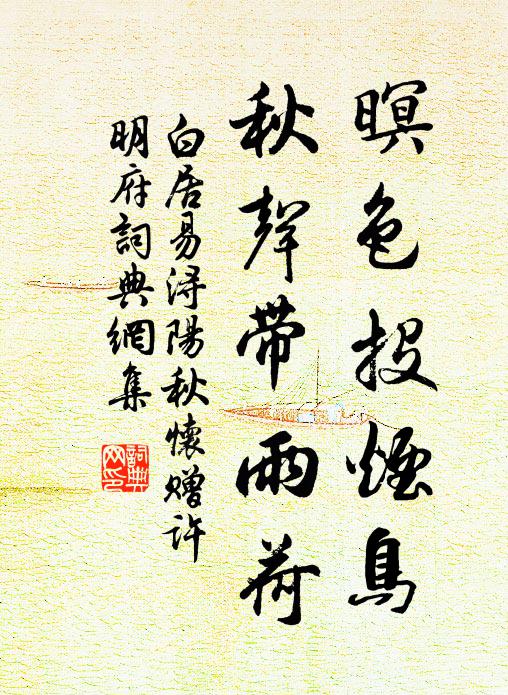 暝色投煙鳥
秋聲帶雨荷
白居易潯陽秋懷贈許
明府詞典網集
詞典
网印